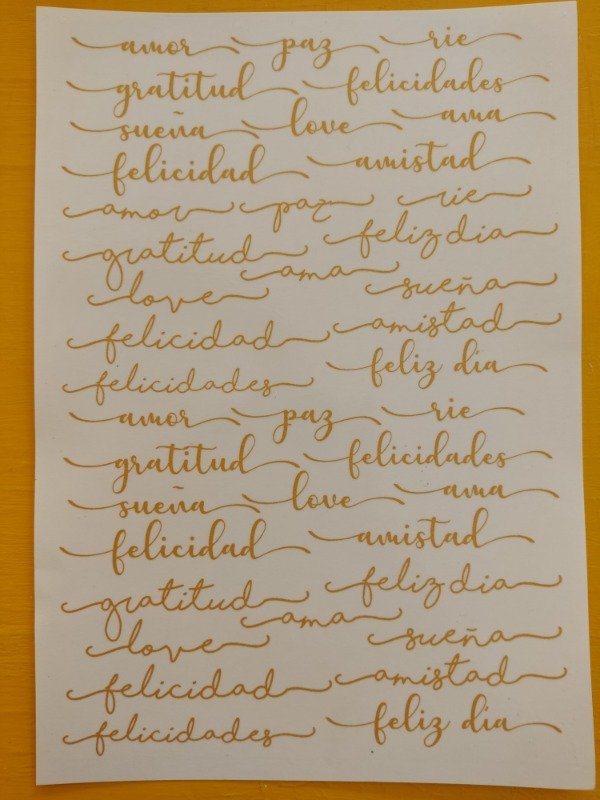 amor paz rie
gratitud felicidades
sueña love ama
felicidad amistad
amor paz rie
gratitud feliz dia
ama
love sueña
felicidad amistad
felicidades feliz dia
amor paz rie
gratitud felicidades
sueña love ama
felicidad amistad
gratitud feliz dia
ama
love sueña
felicidad amistad
felicidades feliz dia